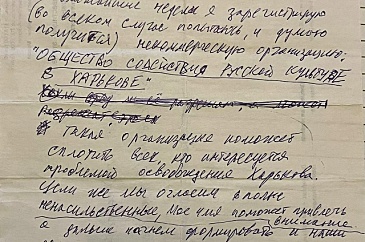 неделе я зарегистрирую
(во всяком случае попытаюсь, и думаю
получится) некоммерческую организацию:
"ОБЩЕСТВО СОДЕЙСТВИЯ РУССКОЙ КУЛЬТУРЕ
В ХАРЬКОВЕ"
Такая организация поможет
сплотить всех кто интересуется
проблемой освобождения Харькова.
Если же мы огласим вполне
ненасильственные, поможет привлечь
внимание
а дальше начнем формировать и наши